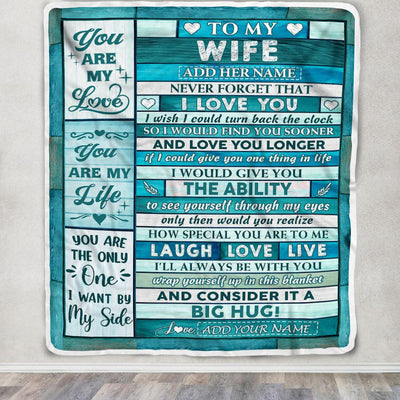 You
ARE MY
Love
You
ARE MY
Life
YOU ARE
THE ONLY
One
I WANT BY
My Side
TO MY
WIFE
ADD HER NAME
NEVER FORGET THAT
I LOVE YOU
I wish I could turn back the clock
SO I WOULD FIND YOU SOONER
AND LOVE YOU LONGER
if I could give you one thing in life
I WOULD GIVE YOU
THE ABILITY
to see yourself through my eyes
only then would you realize
HOW SPECIAL YOU ARE TO ME
LAUGH LOVE LIVE
I'LL ALWAYS BE WITH YOU
wrap yourself up in this blanket
AND CONSIDER IT A
BIG HUG!
Love ADD YOUR NAME